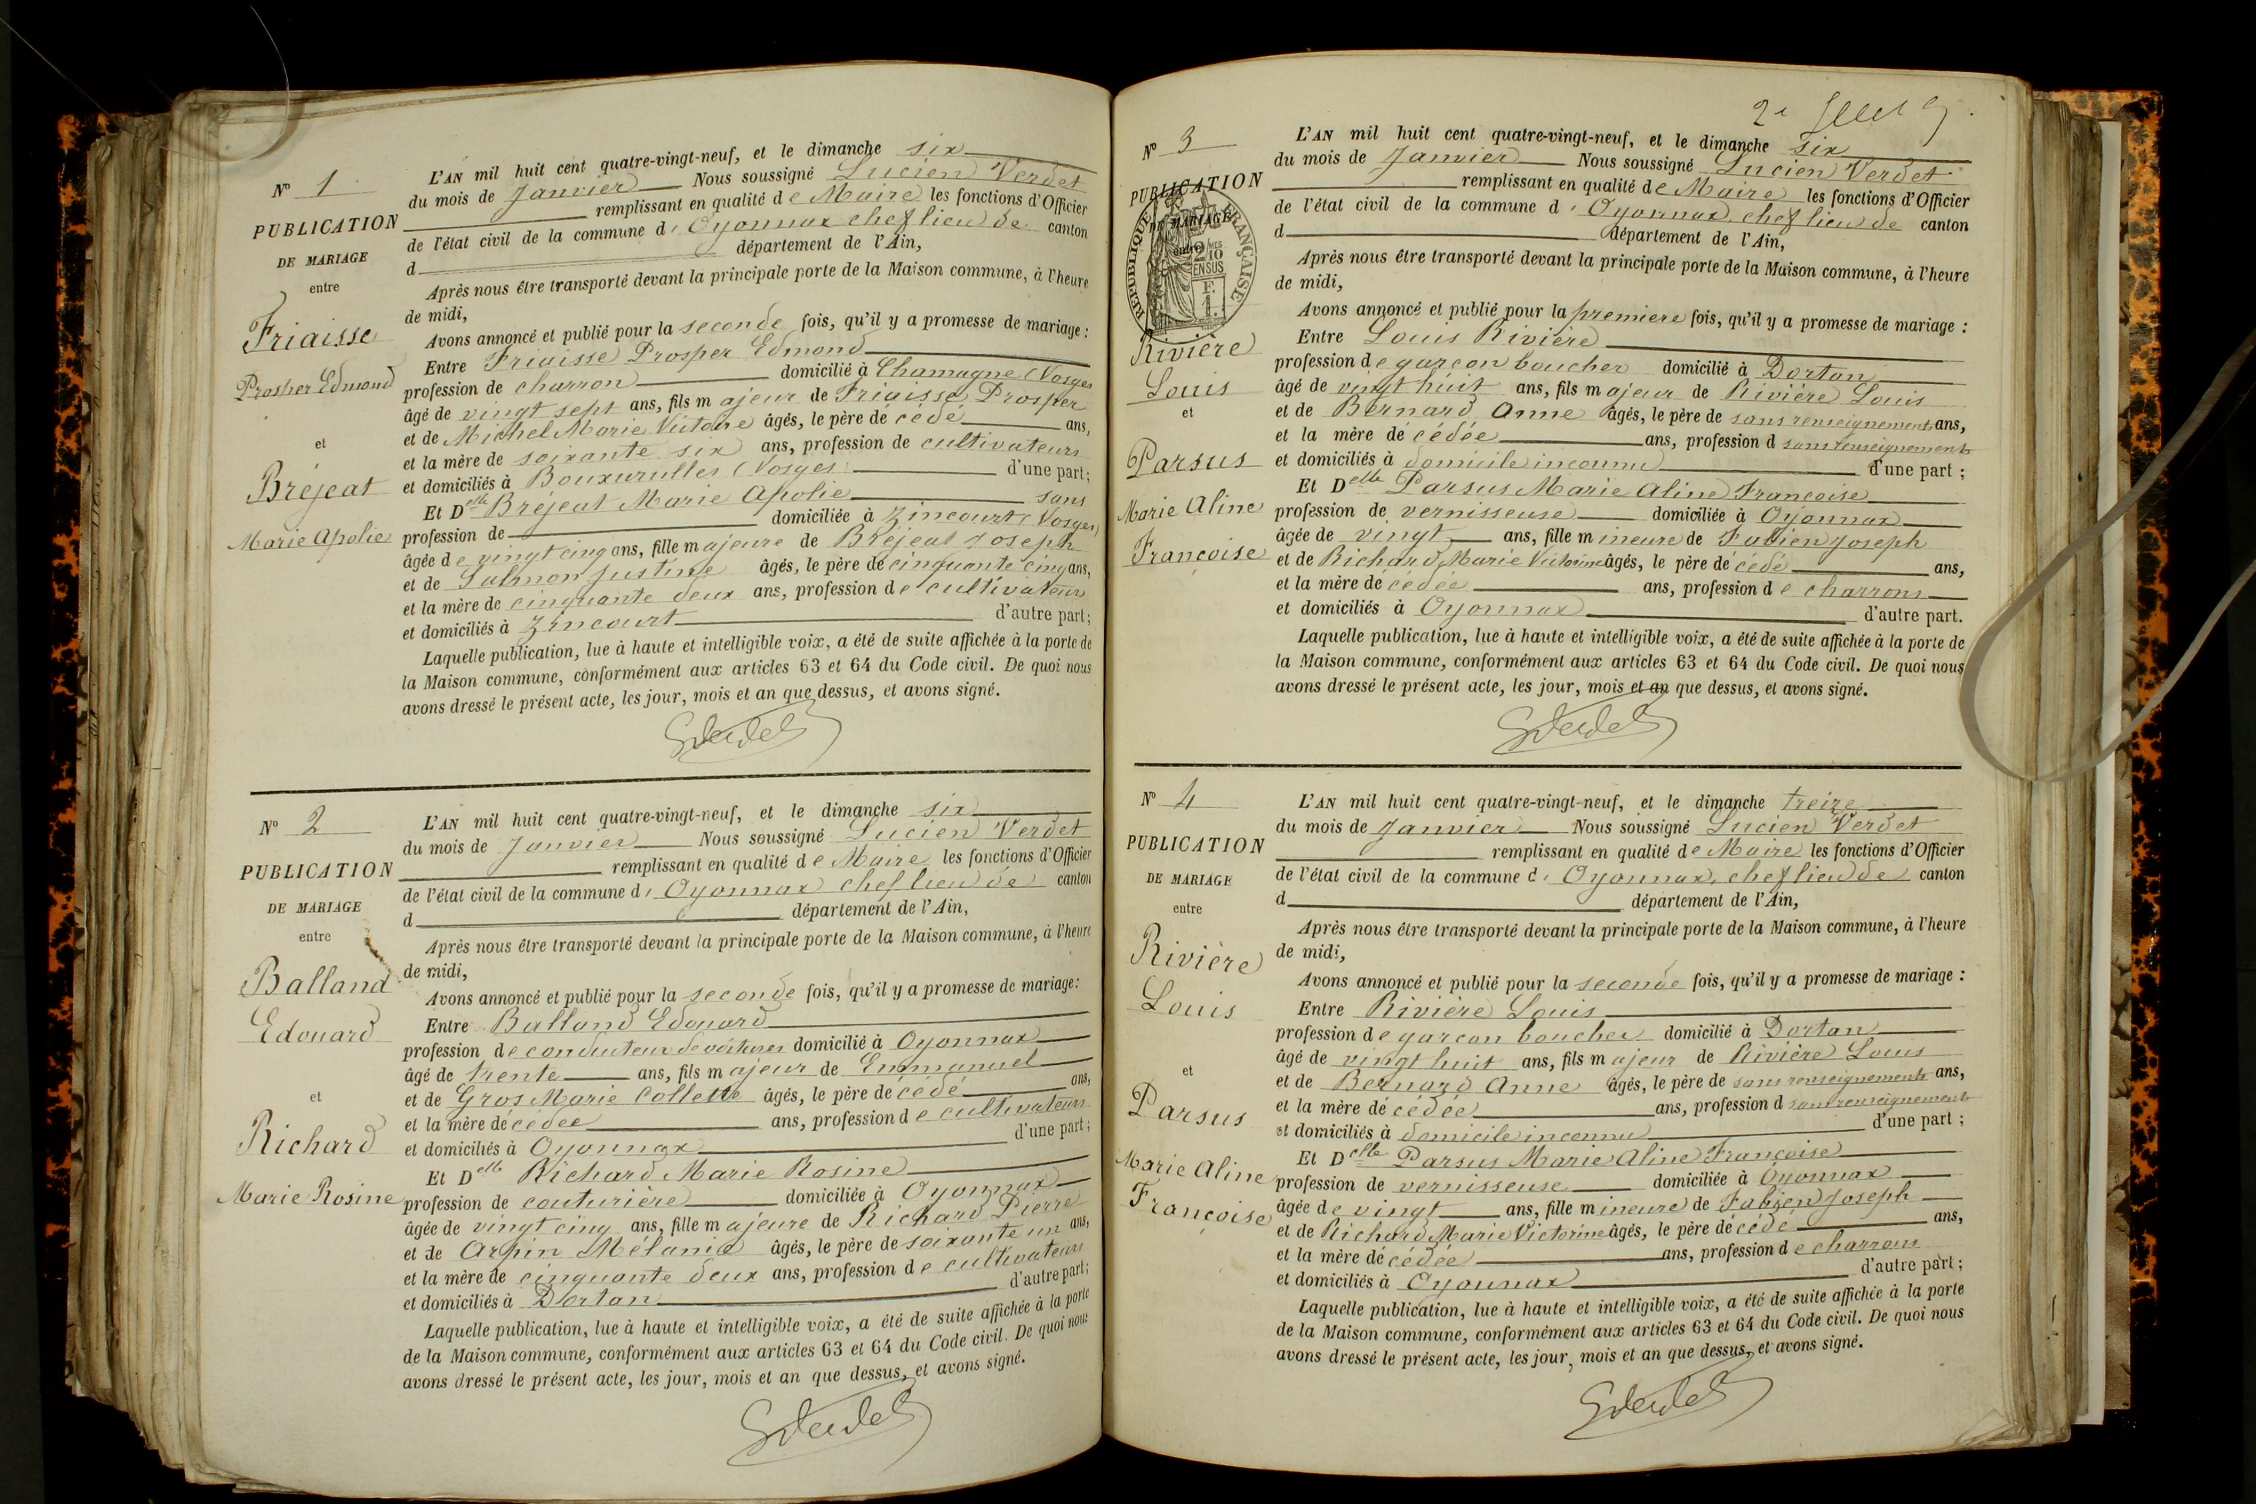 N° 1
PUBLICATION
DE MARIAGE
entre
Friaisse
Prosper Edmond
et
Bréjeat
Marie Apolie
L'AN mil huit cent quatre-vingt-neuf, et le dimanche six
du mois de Janvier Nous soussigné Lucien Verdet
remplissant en qualité de Maire les fonctions d'Officier
de l'état civil de la commune d' Oyonnax chef lieu de canton
d département de l'Ain,
Après nous être transporté devant la principale porte de la Maison commune, à l'heure
de midi,
Avons annoncé et publié pour la seconde fois, qu'il y a promesse de mariage :
Entre Friaisse Prosper Edmond
profession de charron domicilié à Chamagne (Vosges
âgé de vingt sept ans, fils majeur de Friaisse Prosper
et de Michel Marie Victoire âgés, le père décédé ans,
et la mère de soixante six ans, profession de cultivateurs
et domiciliés à Bouxurulles (Vosges) d'une part ;
Et Delle Bréjeat Marie Apolie sans
profession de domiciliée à Zincourt (Vosges)
âgée de vingt cinq ans, fille majeure de Bréjeat Joseph
et de Salmon Justine âgés, le père de cinquante cinq ans,
et la mère de cinquante deux ans, profession de cultivateurs
et domiciliés à Zincourt d'autre part ;
Laquelle publication, lue à haute et intelligible voix, a été de suite affichée à la porte de
la Maison commune, conformément aux articles 63 et 64 du Code civil. De quoi nous
avons dressé le présent acte, les jour, mois et an que dessus, et avons signé.
N° 2
PUBLICATION
DE MARIAGE
entre
Balland
Edouard
et
Richard
Marie Rosine
L'AN mil huit cent quatre-vingt-neuf, et le dimanche six
du mois de Janvier Nous soussigné Lucien Verdet
remplissant en qualité de Maire les fonctions d'Officier
de l'état civil de la commune d' Oyonnax chef lieu de canton
d département de l'Ain,
Après nous être transporté devant la principale porte de la Maison commune, à l'heure
de midi,
Avons annoncé et publié pour la seconde fois, qu'il y a promesse de mariage :
Entre Balland Edouard
profession de conducteur de voitures domicilié à Oyonnax
âgé de trente ans, fils majeur de Emmanuel
et de Gros Marie Collette âgés, le père décédé ans,
et la mère décédée ans, profession de cultivateurs
et domiciliés à Oyonnax d'une part ;
Et Delle Richard Marie Rosine
profession de couturière domiciliée à Oyonnax
âgée de vingt cinq ans, fille majeure de Richard Pierre
et de Arpin Mélanie âgés, le père de soixante un ans,
et la mère de cinquante deux ans, profession de cultivateurs
et domiciliés à Dortan d'autre part ;
Laquelle publication, lue à haute et intelligible voix, a été de suite affichée à la porte
de la Maison commune, conformément aux articles 63 et 64 du Code civil. De quoi nous
avons dressé le présent acte, les jour, mois et an que dessus, et avons signé.
N° 3
PUBLICATION
DE MARIAGE
entre
RÉPUBLIQUE FRANÇAISE
2 MES 10
EN SUS
F.
1.
Rivière
Louis
et
Parsus
Marie Aline
Françoise
L'AN mil huit cent quatre-vingt-neuf, et le dimanche six
du mois de Janvier Nous soussigné Lucien Verdet
remplissant en qualité de Maire les fonctions d'Officier
de l'état civil de la commune d' Oyonnax chef lieu de canton
d département de l'Ain,
Après nous être transporté devant la principale porte de la Maison commune, à l'heure
de midi,
Avons annoncé et publié pour la première fois, qu'il y a promesse de mariage :
Entre Louis Rivière
profession de garçon boucher domicilié à Dortan
âgé de vingt huit ans, fils majeur de Rivière Louis
et de Bernard Anne âgés, le père de sans renseignements ans,
et la mère décédée ans, profession d sans renseignements
et domiciliés à domicile inconnu d'une part ;
Et Delle Parsus Marie Aline Françoise
profession de vernisseuse domiciliée à Oyonnax
âgée de vingt ans, fille mineure de Fabien Joseph
et de Richard Marie Victorine âgés, le père décédé ans,
et la mère décédée ans, profession de charrons
et domiciliés à Oyonnax d'autre part.
Laquelle publication, lue à haute et intelligible voix, a été de suite affichée à la porte de
la Maison commune, conformément aux articles 63 et 64 du Code civil. De quoi nous
avons dressé le présent acte, les jour, mois et an que dessus, et avons signé.
N° 4
PUBLICATION
DE MARIAGE
entre
Rivière
Louis
et
Parsus
Marie Aline
Françoise
L'AN mil huit cent quatre-vingt-neuf, et le dimanche treize
du mois de Janvier Nous soussigné Lucien Verdet
remplissant en qualité de Maire les fonctions d'Officier
de l'état civil de la commune d' Oyonnax, chef lieu de canton
d département de l'Ain,
Après nous être transporté devant la principale porte de la Maison commune, à l'heure
de midi,
Avons annoncé et publié pour la seconde fois, qu'il y a promesse de mariage :
Entre Rivière Louis
profession de garçon boucher domicilié à Dortan
âgé de vingt huit ans, fils majeur de Rivière Louis
et de Bernard Anne âgés, le père de sans renseignements ans,
et la mère décédée ans, profession d sans renseignements
et domiciliés à domicile inconnu d'une part ;
Et Delle Parsus Marie Aline Françoise
profession de vernisseuse domiciliée à Oyonnax
âgée de vingt ans, fille mineure de Fabien Joseph
et de Richard Marie Victorine âgés, le père décédé ans,
et la mère décédée ans, profession de charrons
et domiciliés à Oyonnax d'autre part ;
Laquelle publication, lue à haute et intelligible voix, a été de suite affichée à la porte
de la Maison commune, conformément aux articles 63 et 64 du Code civil. De quoi nous
avons dressé le présent acte, les jour, mois et an que dessus, et avons signé.